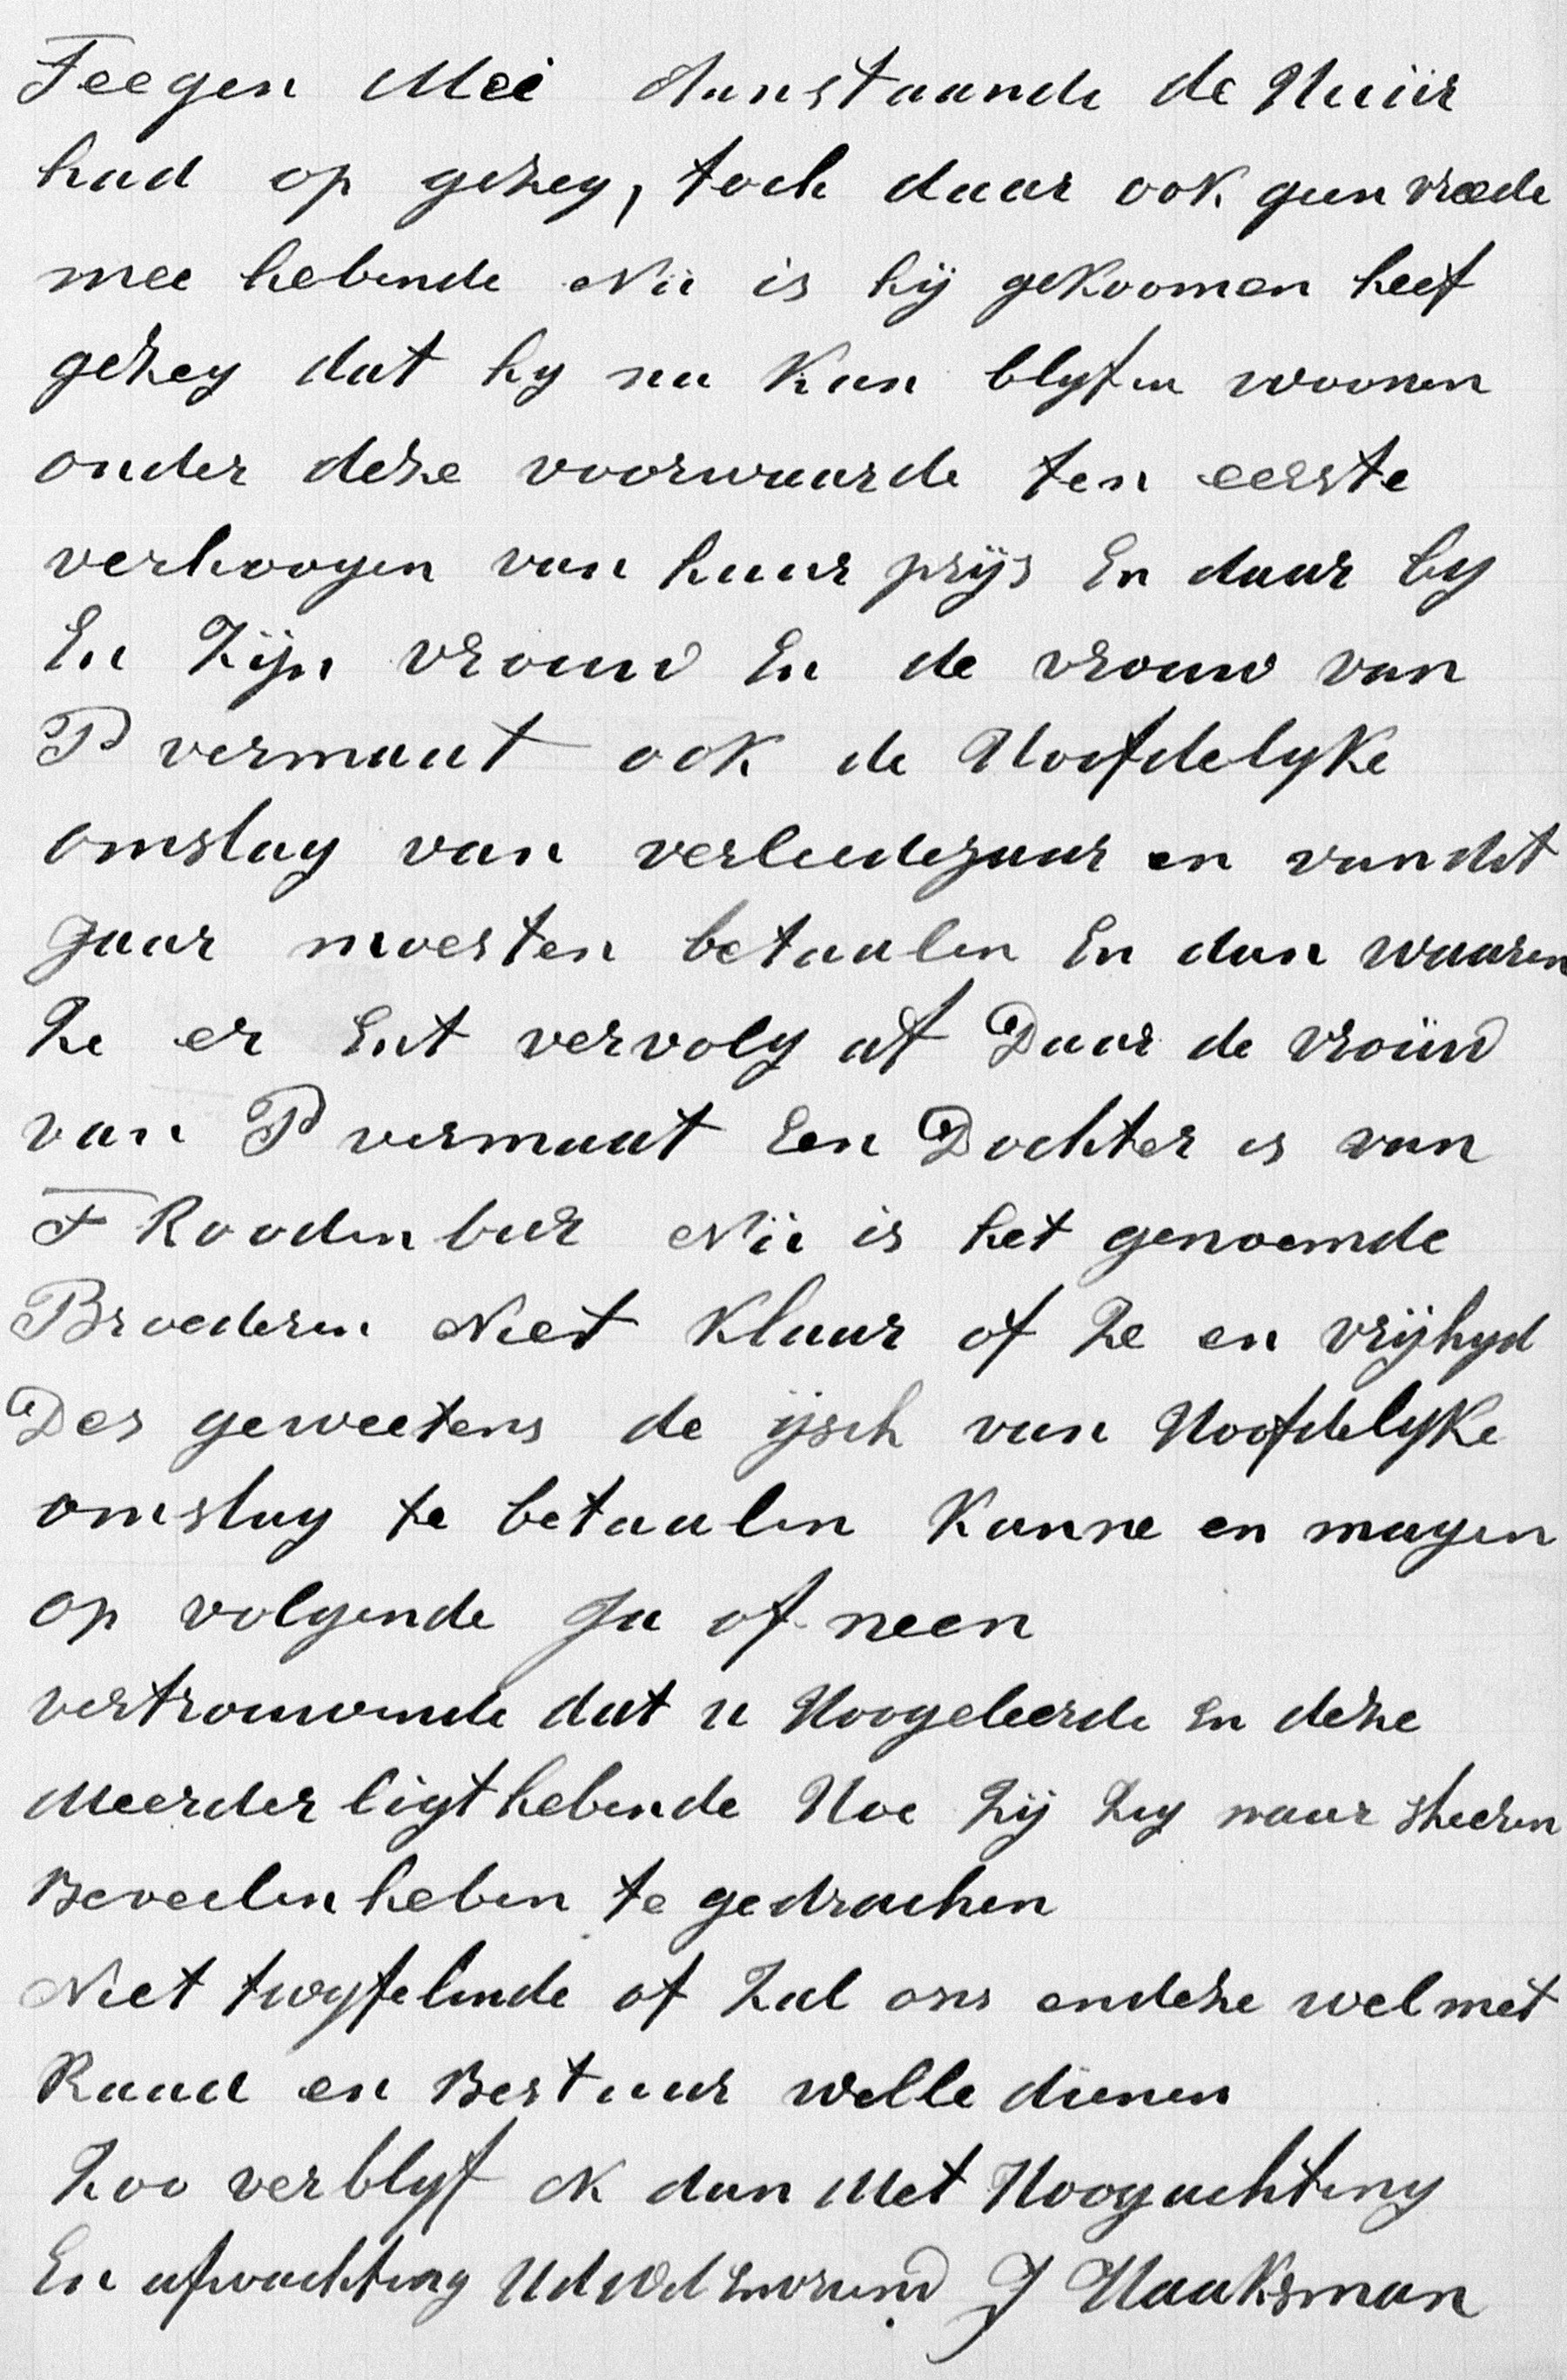 Teegen Mei Aanstaande de Huür
had op gezeg, toch daar ook geen vreede
mee hebende Nü is hij gekoomen heef
gezeg dat hy nu Kan blyfen woonen
onder deze voorwaarde ten eerste
verhoogen van huur prijs En daar by
En Zijn vrouw En de vrouw van
P vermaat ook de Hoofdelyke
omslag van verleedejaar en van dit
Jaar moesten betaalen En dan waaren
Ze er Ent vervolg af Daar de vroüw
van P vermaat Een Dochter is van
F Roodenbur Nü is het genoemde
Broederen Niet Klaar of Ze en vrijhyd
Des geweetens de ijsch van Hoofdelyke
omslag te betaalen Kanne en magen
op volgende Ja of neen
vertrouwende dat u Hoogeleerde En deze
Meerder ligt hebende Hoe Zij Zeg naar sheeren
Beveelen heben te gedrachen
Niet twyfelende of Zal ons endeze wel met
Raad en Bestuur welle dienen
Zoo verblyf ik dan Met Hoogachting
En afwachting UdWd Envrind J Haaksman